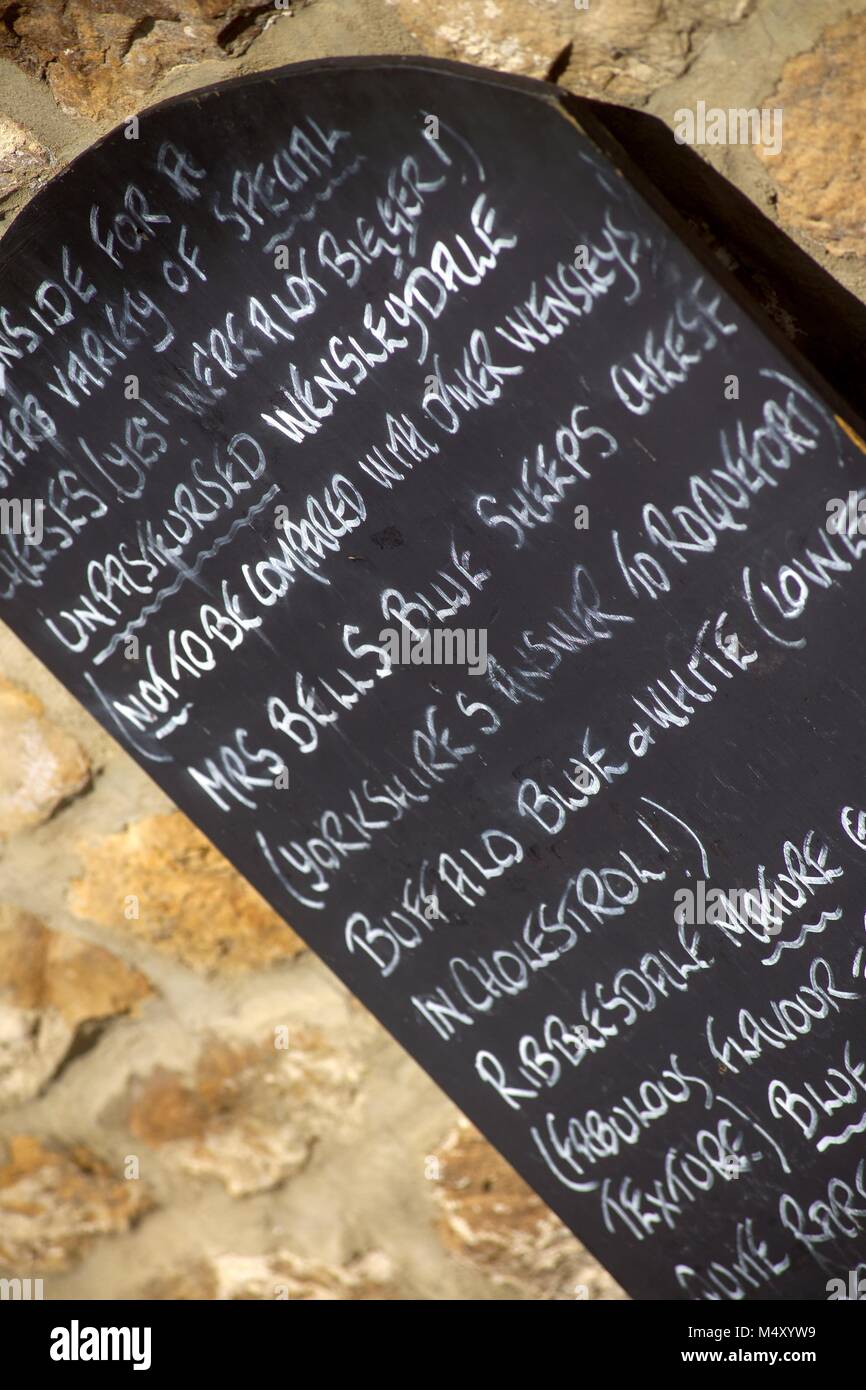 INSIDE FOR A
SUPERB VARIETY OF SPECIAL
CHEESES (YES! WERE ALOT BIGGER!)
UNPASTEURISED WENSLEYDALE
(NOT TO BE COMPARED WITH OTHER WENSLEYS.
MRS BELLS BLUE SHEEPS CHEESE
(YORKSHIRE'S ANSWER TO ROQUEFORT)
BUFFALO BLUE & WHITE (LOWE
IN CHOLESTROL!)
RIBBLESDALE MATURE G
(FABULOUS FLAVOUR &
TEXTURE) BLUE
SOME RARE
alamy
Image ID: M4XYW9
www.alamy.com